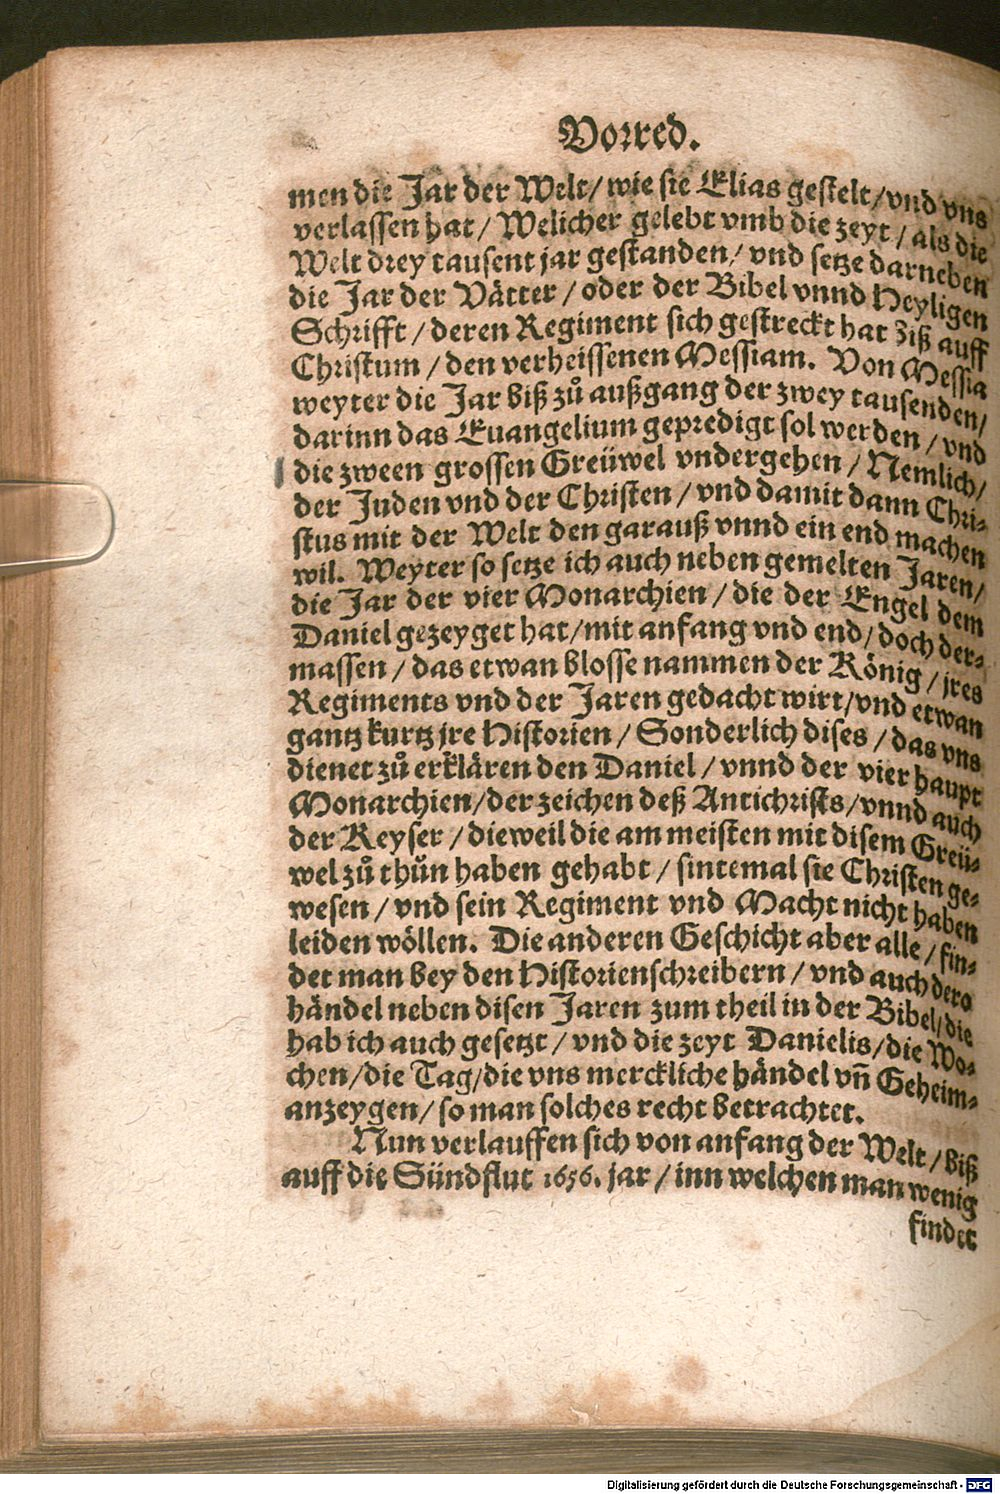 Vorred.
men die Jar der Welt/ wie sie Elias gestelt/vnd vns
verlassen hat/ Welicher gelebt vmb die zeyt/ als die
Welt drey tausent jar gestanden/ vnd setze darneben
die Jar der Vätter/ oder der Bibel vnnd Heyligen
Schrifft/ deren Regiment sich gestreckt hat biß auff
Christum/ den verheissenen Messiam. Von Messia
weyter die Jar biß zů außgang der zwey tausenden/
darinn das Euangelium gepredigt sol werden/ vnd
die zween grossen Greüwel vndergehen/ Nemlich/
der Juden vnd der Christen/ vnd damit dann Chri-
stus mit der Welt den garauß vnnd ein end machen
wil. Weyter so setze ich auch neben gemelten Jaren/
die Jar der vier Monarchien/ die der Engel dem
Daniel gezeyget hat/mit anfang vnd end/doch der-
massen/ das etwan blosse nammen der König/ jres
Regiments vnd der Jaren gedacht wirt/vnd etwan
gantz kurtz jre Historien/ Sonderlich dises/ das vns
dienet zů erklären den Daniel/ vnnd der vier haupt
Monarchien/der zeichen deß Antichrists/vnnd auch
der Keyser/ dieweil die am meisten mit disem Greü-
wel zů thůn haben gehabt/ sintemal sie Christen ge-
wesen/ vnd sein Regiment vnd Macht nicht haben
leiden wöllen. Die anderen Geschicht aber alle/ fin-
det man bey den Historienschreibern/ vnd auch dero
händel neben disen Jaren zum theil in der Bibel/die
hab ich auch gesetzt/ vnd die zeyt Danielis/die Wo-
chen/die Tag/die vns merckliche händel vñ Geheim-
anzeygen/ so man solches recht betrachtet.
Nun verlauffen sich von anfang der Welt/ biß
auff die Sündflut 1656. jar/ inn welchen man wenig
findet
Digitalisierung gefördert durch die Deutsche Forschungsgemeinschaft - DFG